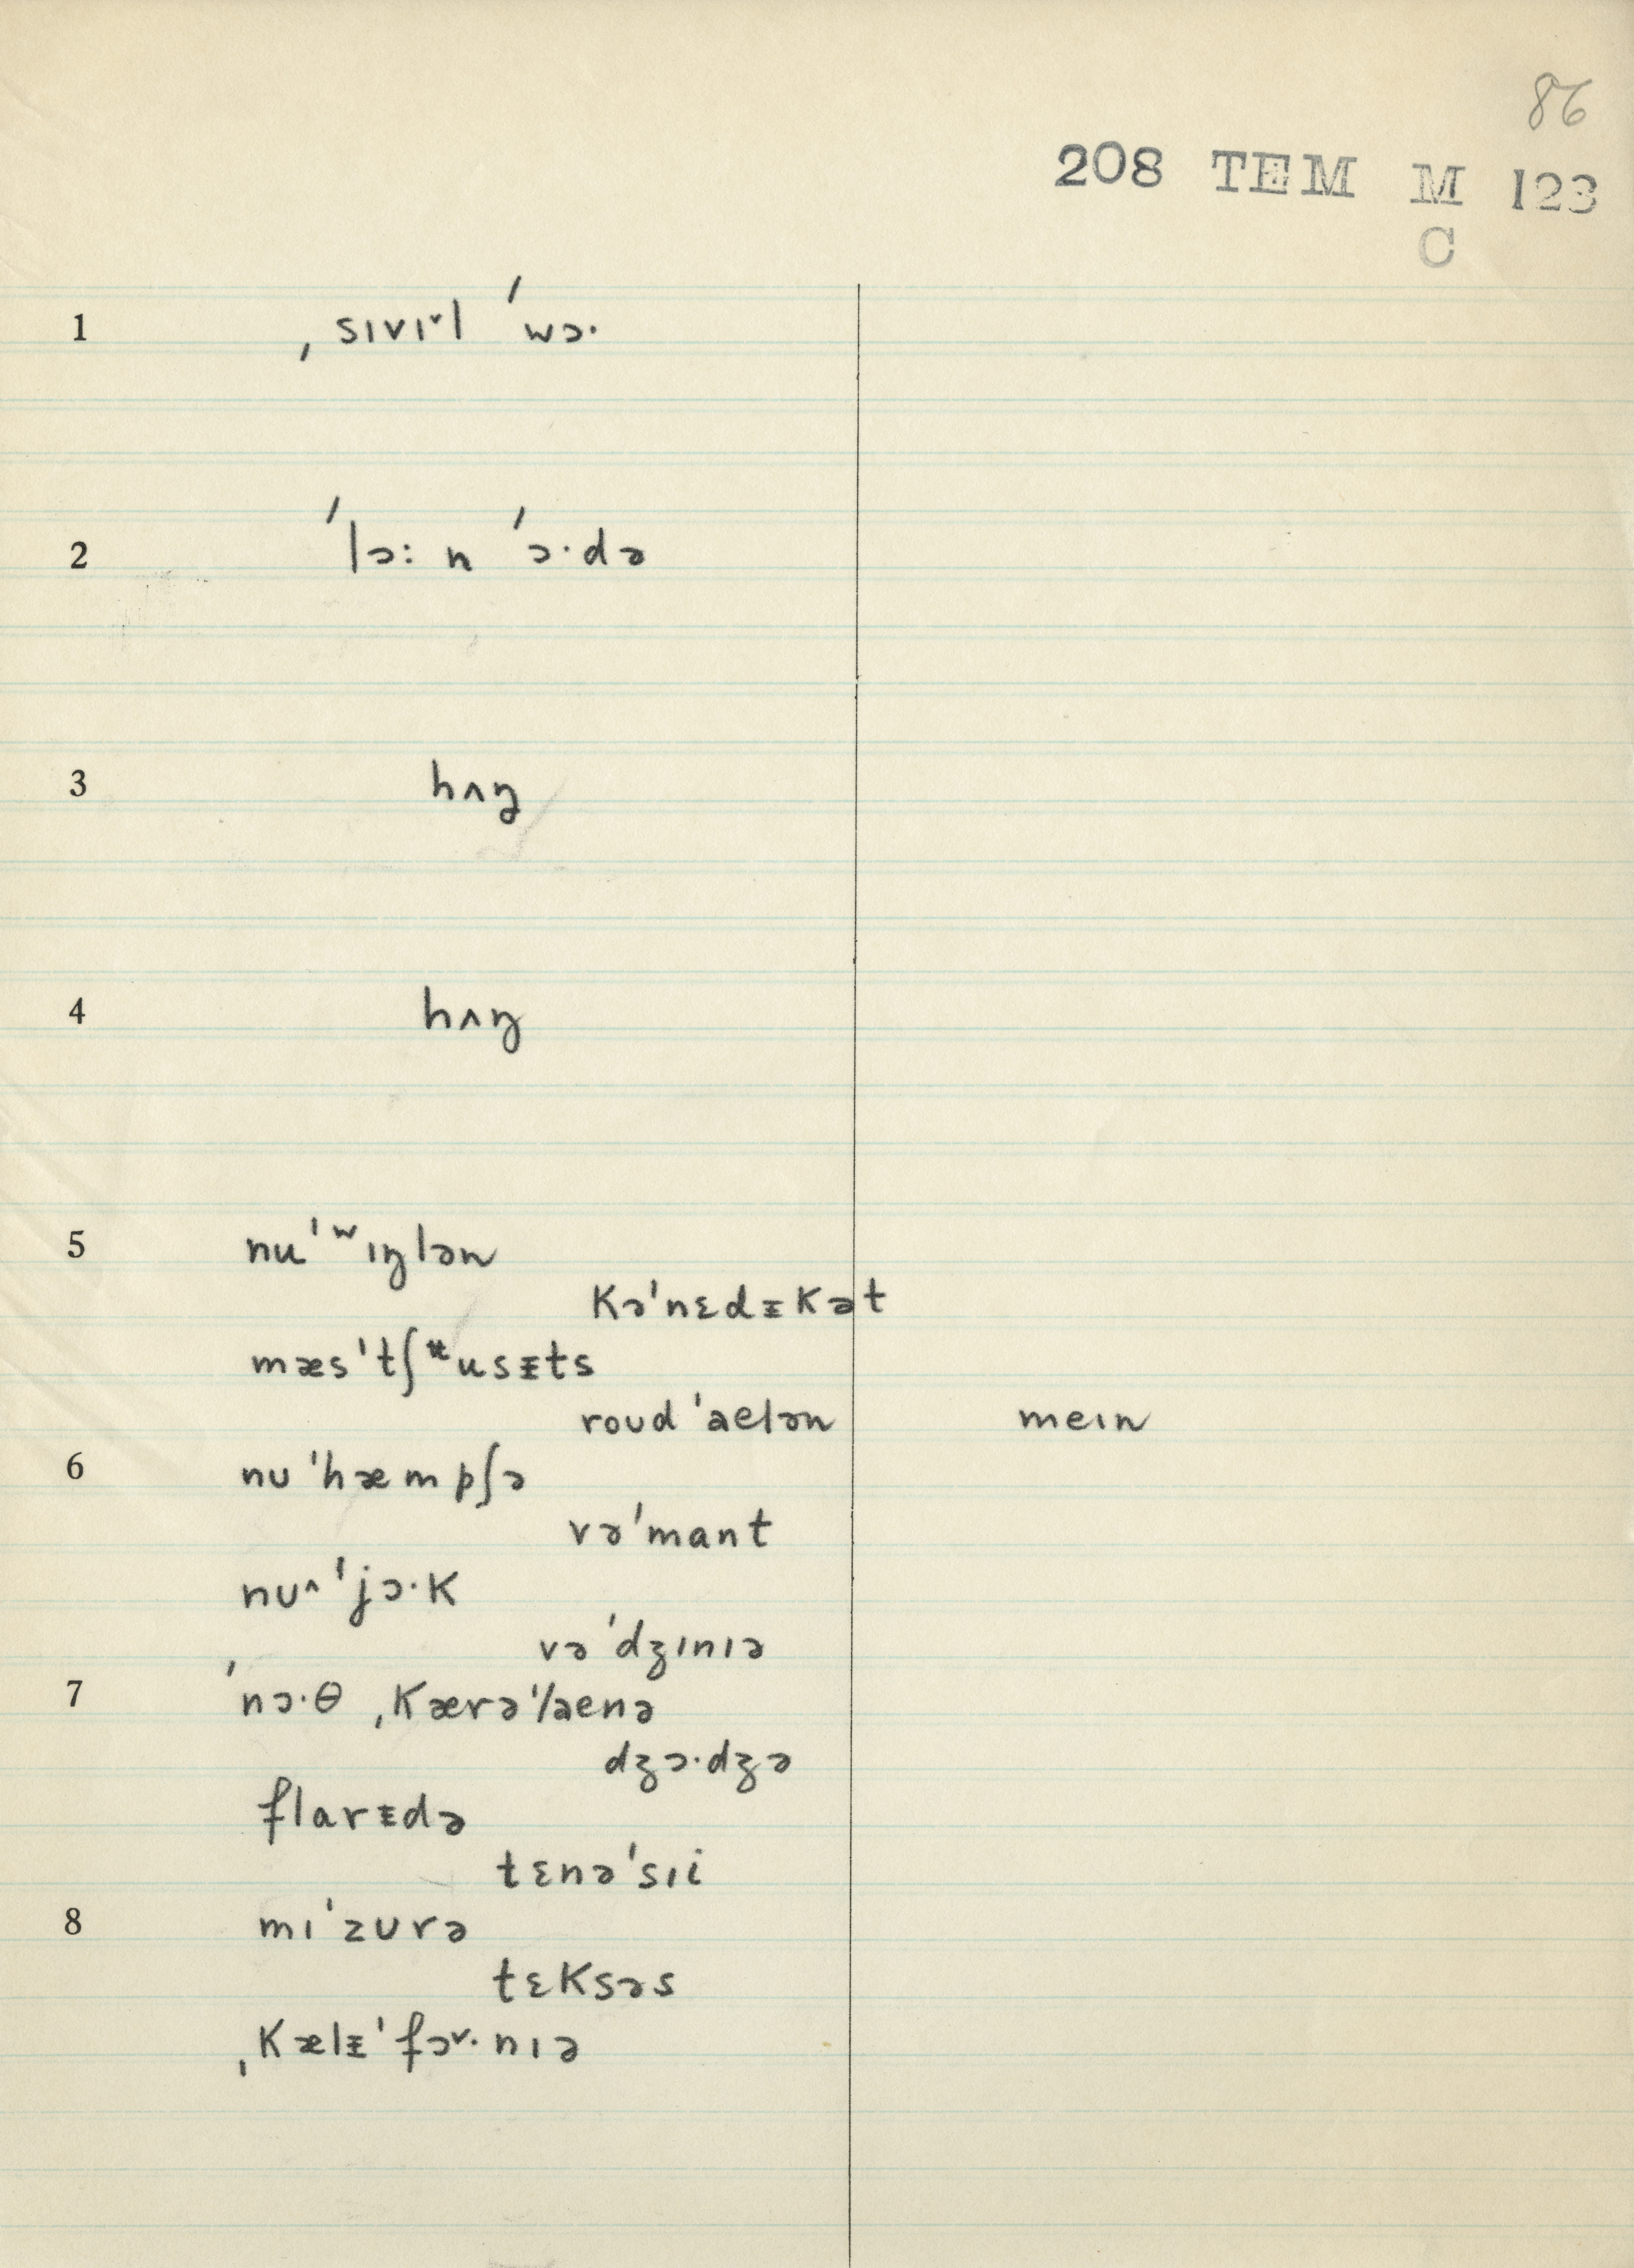 86
208 TEM M 123
C
1 ˌsɪvɪ˅l ˈˈwɔ·
2 ˈˈlɔ: n ˈˈɔ·də
3 hʌŋ
4 hʌŋ
5 nuˈʷɪŋlən
kəˈnɛdᵻkət
mæsˈtʃusᵻts
roudˈaelən meɪn
6 nuˈhæmpʃə
vəˈmant
nʊ^ˈjɔ·k
vəˈdʒɪnɪə
7 ˈˈnɔ·θ ˌkærəˈlaenə
dʒɔ·dʒə
flarᵻdə
tɛnəˈsɪi
8 mɪˈzʊrə
tɛksəs
ˌkælᵻˈfɔ˅·nɪə